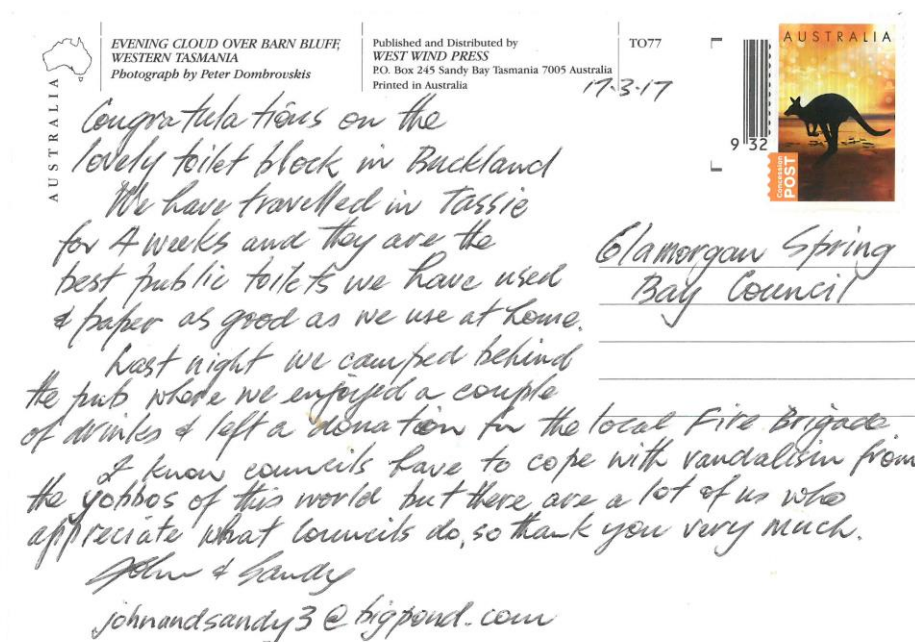 EVENING CLOUD OVER BARN BLUFF,
WESTERN TASMANIA
Photograph by Peter Dombrovskis
Published and Distributed by
WEST WIND PRESS
P.O. Box 245 Sandy Bay Tasmania 7005 Australia
Printed in Australia
TO77
AUSTRALIA
9 32
AUSTRALIA
Concession
POST
17-3-17
Congratulations on the
lovely toilet block in Buckland
We have travelled in Tassie
for 4 weeks and they are the
best public toilets we have used
& paper as good as we use at home.
Last night we camped behind
the pub where we enjoyed a couple
of drinks & left a donation for the local Fire Brigade
I know councils have to cope with vandalism from
the yobbos of this world but there are a lot of us who
appreciate what councils do, so thank you very much.
John & Sandy
johnandsandy3@bigpond.com
Glamorgan Spring
Bay Council